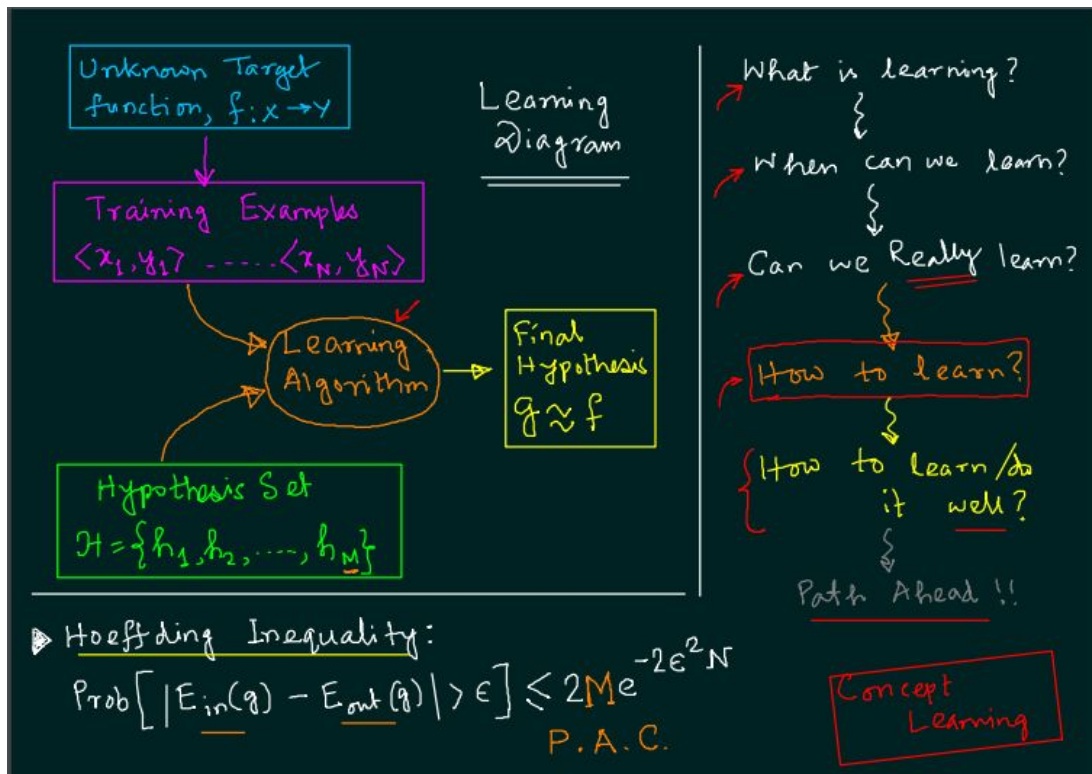 Unknown Target
function, f: X → Y
Learning
Diagram
Training Examples
<x₁, y₁> ...... <x_N, y_N>
Learning
Algorithm
Final
Hypothesis
g ≈ f
Hypothesis Set
H = {h₁, h₂, ....., h_M}
What is learning?
When can we learn?
Can we Really learn?
How to learn?
How to learn/do
it well?
Path Ahead !!
Hoeffding Inequality:
Prob[ |E_in(g) - E_out(g)| > ϵ ] ≤ 2Me^{-2ϵ²N}
P.A.C.
Concept
Learning